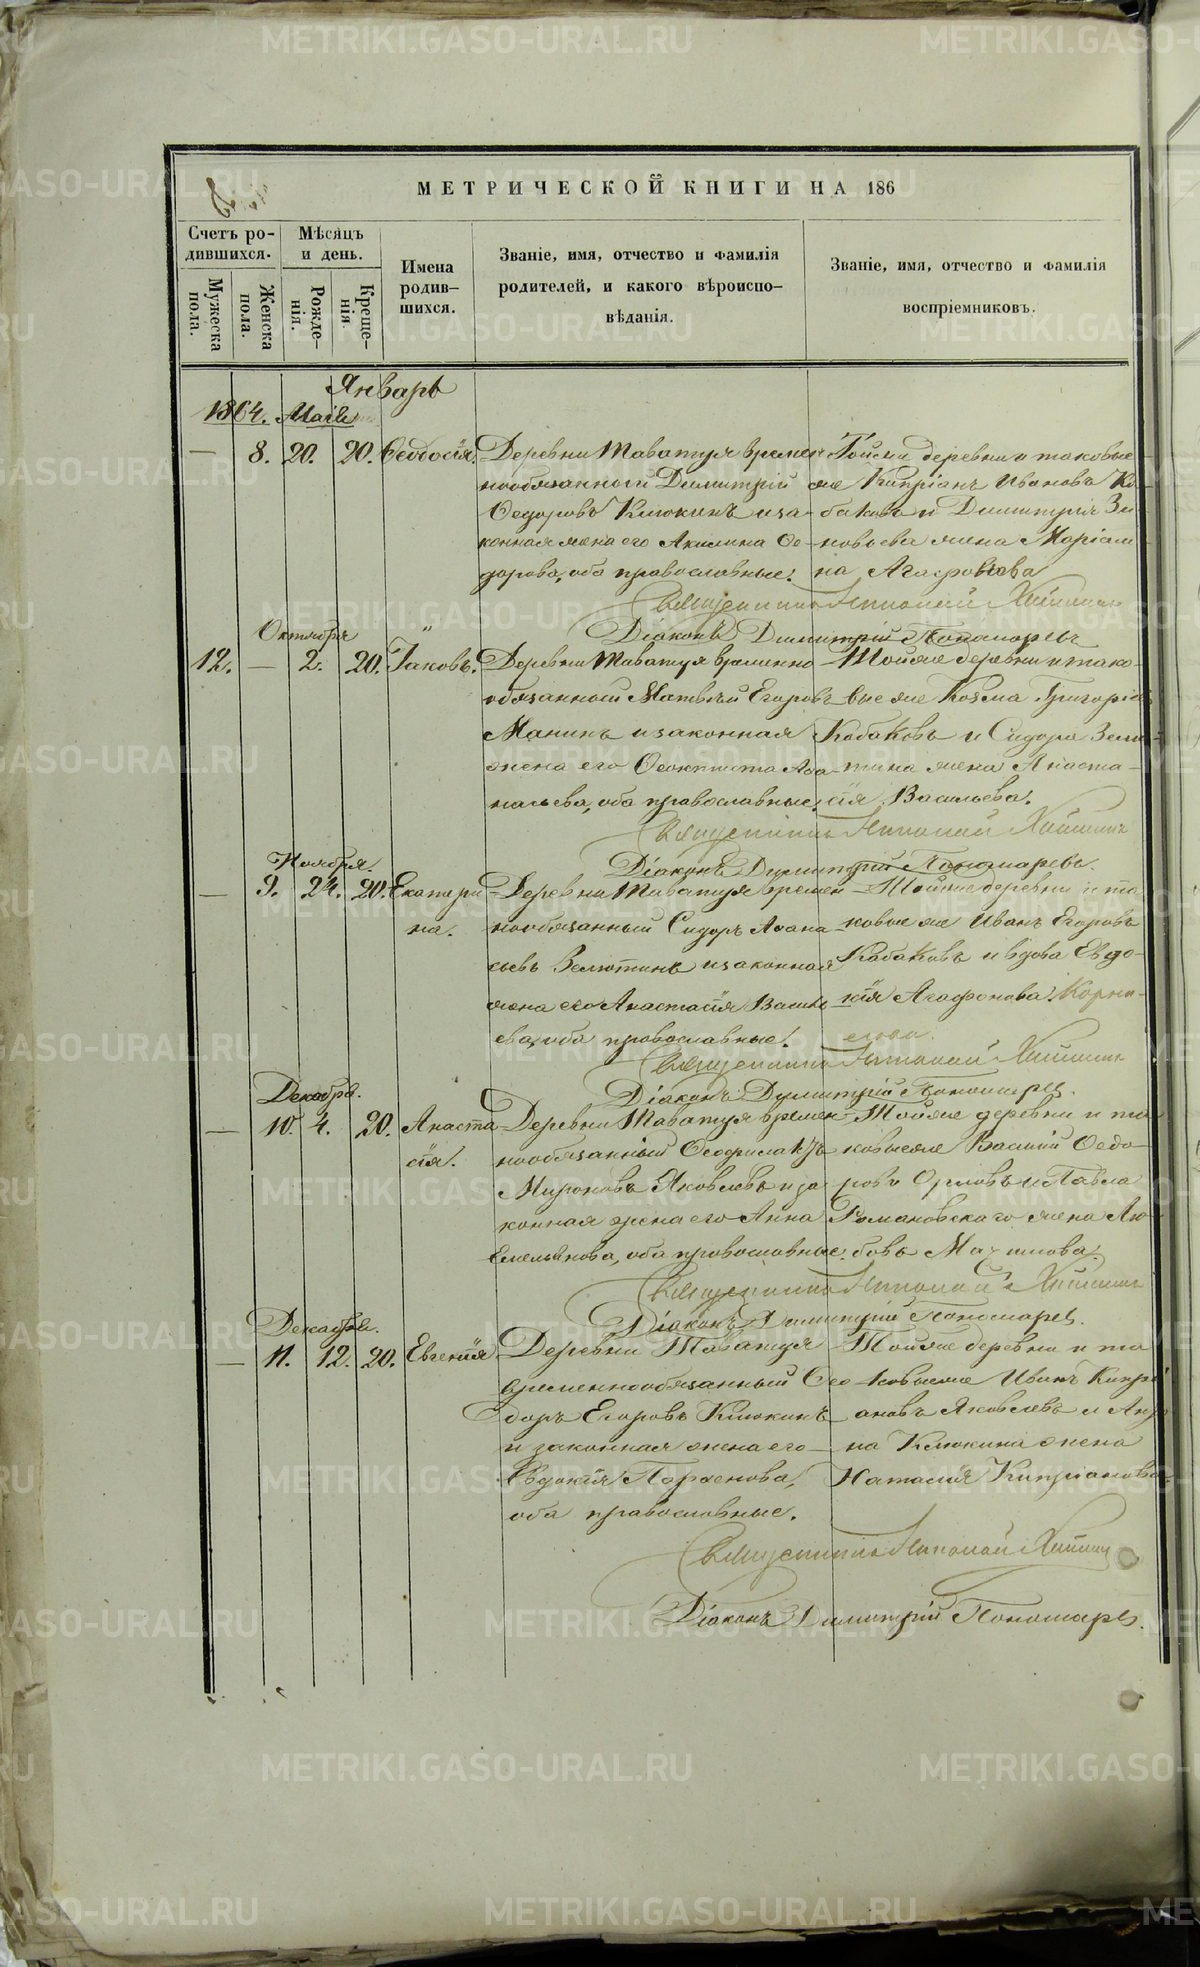 МЕТРИЧЕСКОЙ КНИГИ НА 186
Счетъ ро-
дившихся.
Мѣсяцъ
и день.
Мужеска
пола.
Женска
пола.
Рожде-
нія.
Креще-
нія.
Имена
родив-
шихся.
Званіе, имя, отчество и фамилія
родителей, и какого вѣроиспо-
вѣданія.
Званіе, имя, отчество и фамилія
воспріемниковъ.
Январь
1864. Маія
— 8. 20. 20. Ѳеодосія.
Деревни Таватуя времен
нообязанный Димитрій
Ѳедоровъ Клюкинъ и за-
конная жена его Акилина Ѳе-
дорова, оба православные.
Той же деревни и таковые
же Кипріанъ Ивановъ Ка
баковъ и Димитрія Зи
новьева жена Маріам
на Агафонова
Священникъ Николай
Діаконъ Димитрій Пономаревъ
Октября
12. — 2. 20. Іаковъ.
Деревни Таватуя временно
обязанный Матвѣй Егоровъ
Манинъ и законная
жена его Ѳеоктиста Аѳа-
насьева, оба православные.
Той же деревни и тако-
вые же Козма Григорьев
Кабаковъ и Сидора Зелю-
тина жена Анаста-
сія Васильева.
Священникъ Николай
Діаконъ Димитрій Пономаревъ.
Ноября.
— 9. 24. 20. Екатери
на.
Деревни Таватуя времен
нообязанный Сидоръ Аѳана
сьевъ Зелютинъ и законная
жена его Анастасія Василь
ева, оба православные.
Той же деревни и та
ковые же Иванъ Егоровъ
Кабаковъ и вдова Евдо-
кія Агафонова Корни-
егова.
Священникъ Николай
Діаконъ Димитрій Пономарев.
Декабря.
— 10. 4. 20. Анаста
сія.
Деревни Таватуя времен
нообязанный Ѳеофилактъ
Мироновъ Яковлевъ и за
конная жена его Анна
Емельянова, оба православные.
Той же деревни и та
ковые же Василій Ѳедо-
ровъ Орловъ и Павла
Романовскаго жена Лю
бовь Ма
Священникъ Николай
Діаконъ Димитрій Пономарев.
Декабря.
— 11. 12. 20. Евгенія
Деревни Таватуя
временнообязанный Ѳео
доръ Егоровъ Клюкинъ
и законная жена его
Евдокія Парѳенова,
оба православные.
Той же деревни и та
ковые же Иванъ Кипрі
ановъ Яковлевъ и
на Клюкина жена
Наталія Кипріанова.
Священникъ Николай
Діаконъ Димитрій Пономарев.
METRIKI.GASO-URAL.RU